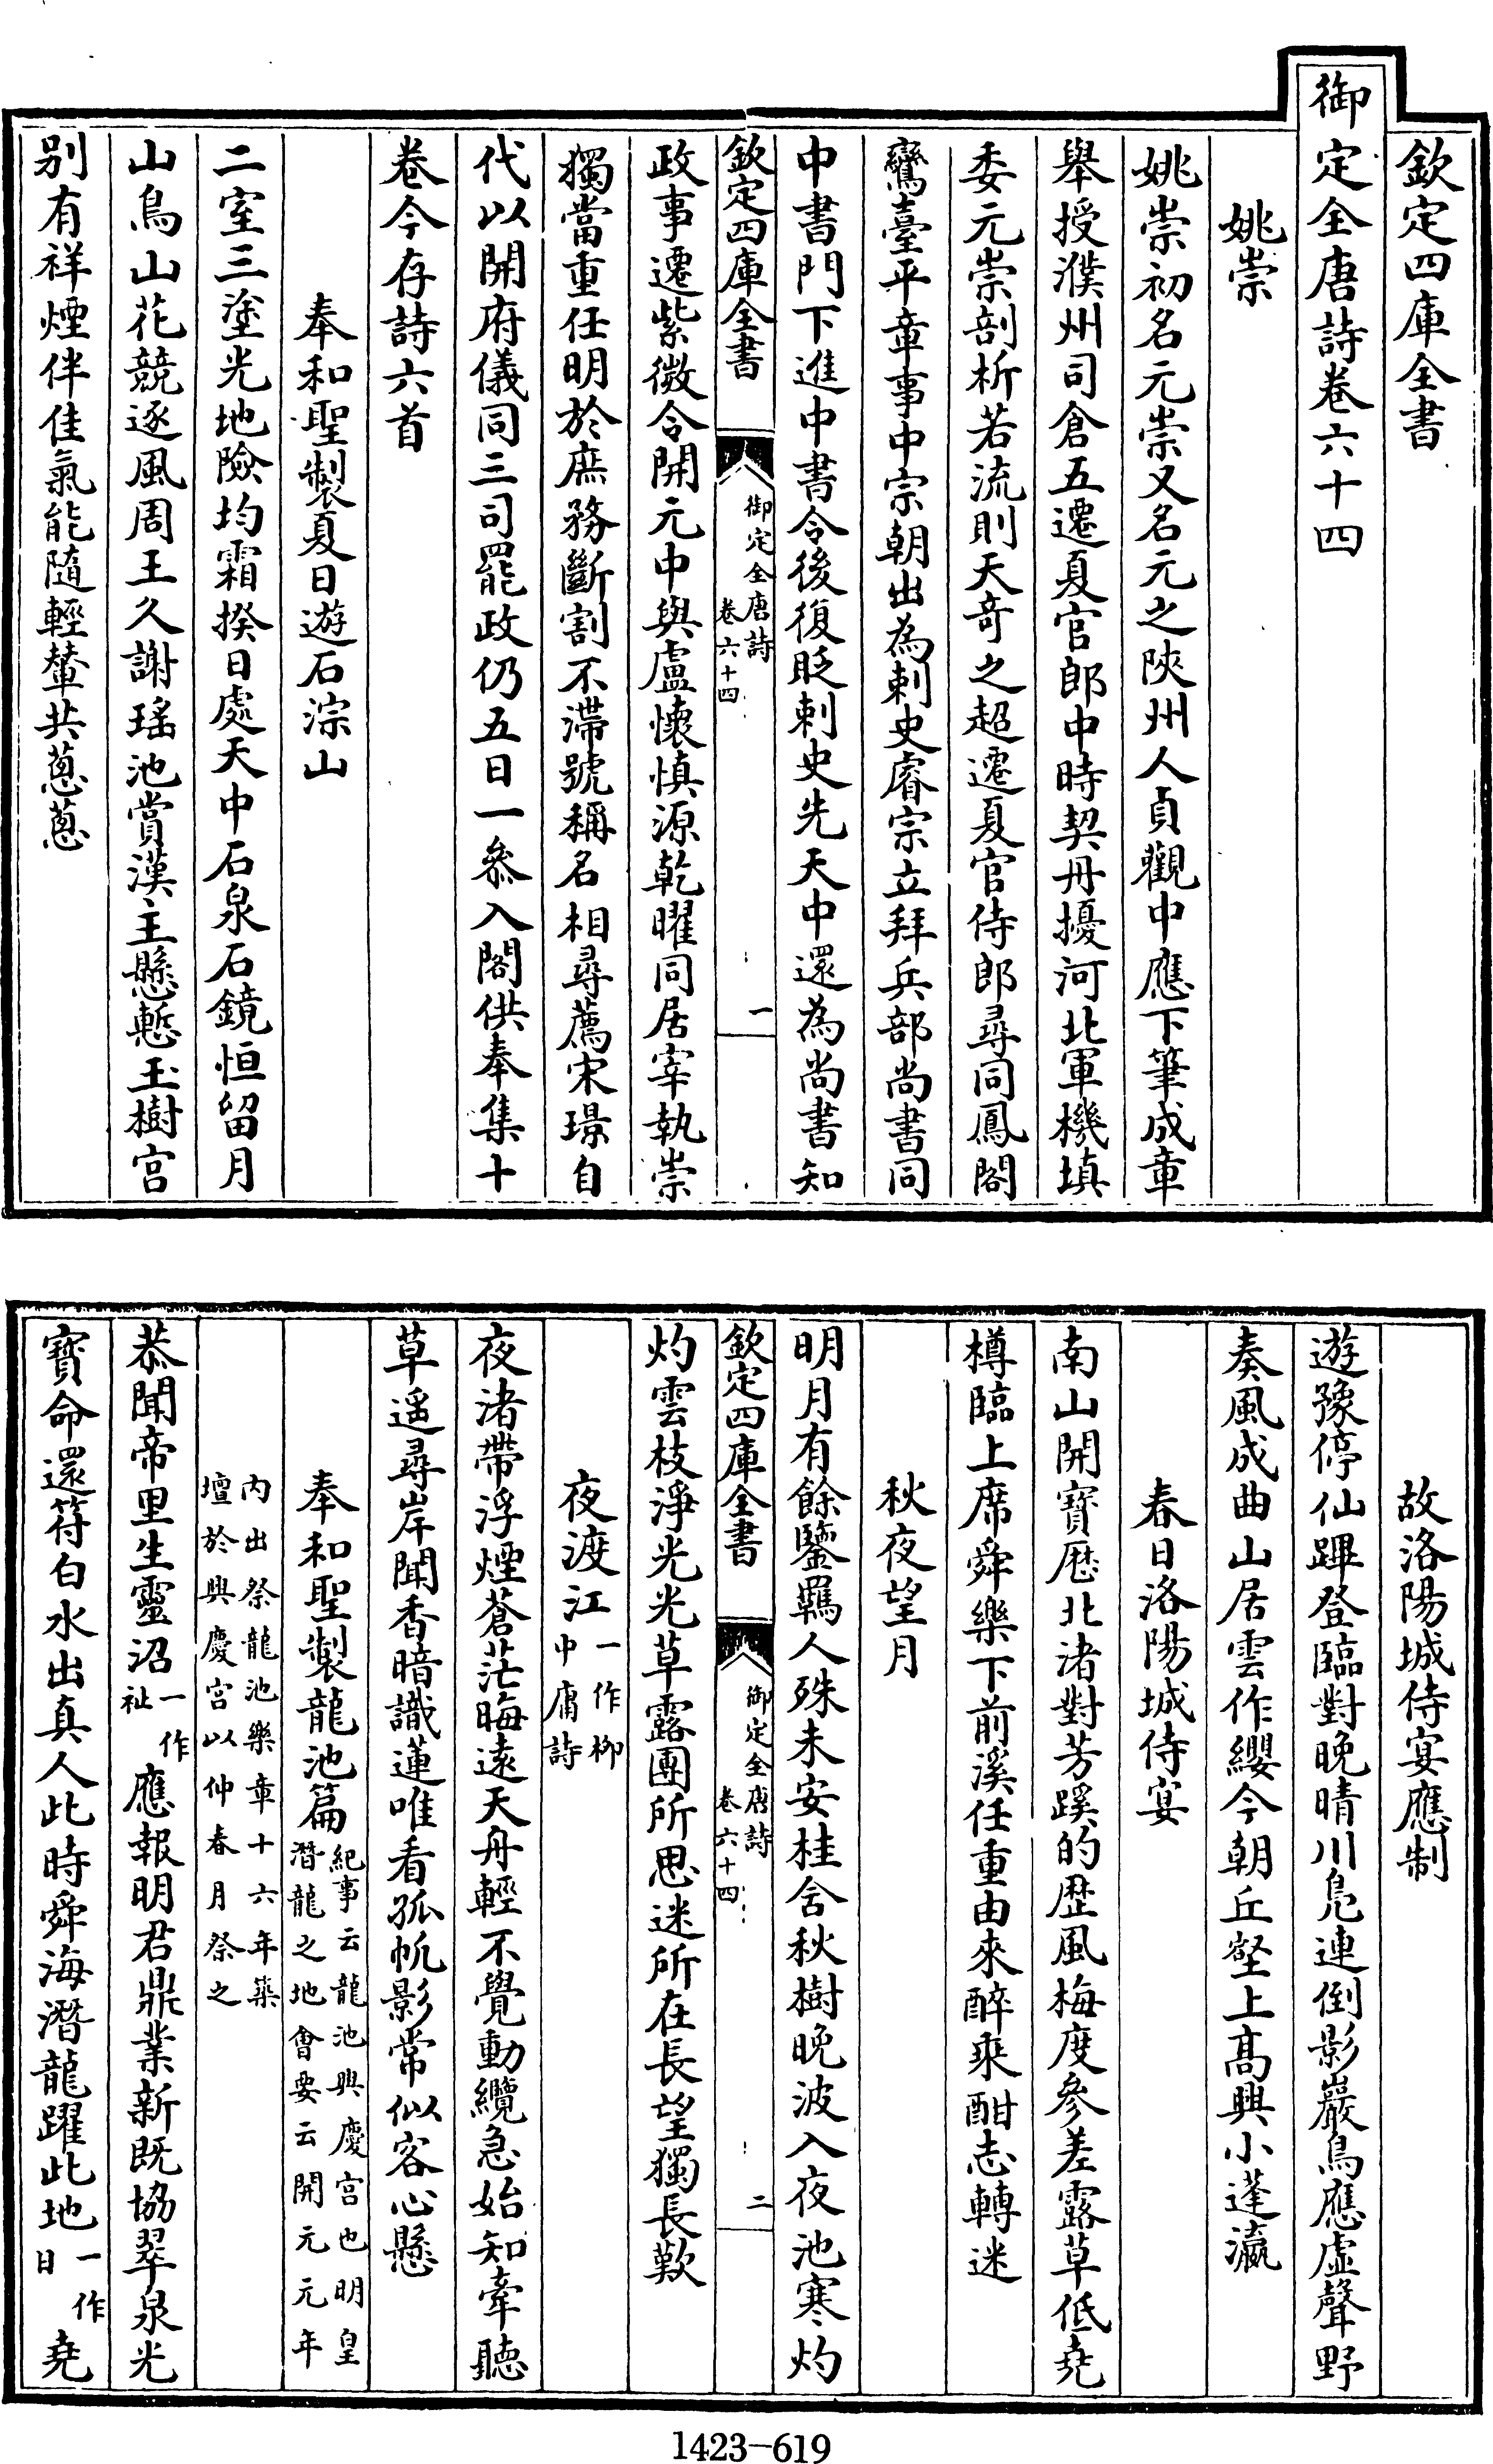 欽定四庫全書
御定全唐詩卷六十四
姚崇
姚崇初名元崇又名元之陝州人貞觀中應下筆成章
舉授濮州司倉五遷夏官郎中時契丹擾河北軍機填
委元崇剖析若流則天奇之超遷夏官侍郎尋同鳳閣
鸞臺平章事中宗朝出為刺史睿宗立拜兵部尚書同
中書門下進中書令後復貶刺史先天中還為尚書知
欽定四庫全書
御定全唐詩
卷六十四
一
政事遷紫微令開元中與盧懷慎源乾曜同居宰執崇
獨當重任明於庶務斷割不滯號稱名相尋薦宋璟自
代以開府儀同三司罷政仍五日一叅入閣供奉集十
卷今存詩六首
奉和聖製夏日遊石淙山
二室三塗光地險均霜揆日處天中石泉石鏡恒留月
山鳥山花競逐風周王久謝瑤池賞漢主懸慙玉樹宫
别有祥煙伴佳氣能隨輕輦共蔥蔥
故洛陽城侍宴應制
遊豫停仙蹕登臨對晚晴川鳧連倒影巖鳥應虛聲野
奏風成曲山居雲作纓今朝丘壑上髙興小蓬瀛
春日洛陽城侍宴
南山開寶厯北渚對芳蹊的歴風梅度參差露草低堯
樽臨上席舜樂下前溪任重由來醉乘酣志轉迷
秋夜望月
明月有餘鑒羇人殊未安桂含秋樹晚波入夜池寒灼
欽定四庫全書
御定全唐詩
卷六十四
二
灼雲枝淨光光草露團所思迷所在長望獨長歎
夜渡江一作柳中庸詩
夜渚帶浮煙蒼茫晦遠天舟輕不覺動纜急始知牽聽
草遥尋岸聞香暗識蓮唯看孤帆影常似客心懸
奉和聖製龍池篇紀事云龍池興慶宫也明皇潛龍之地會要云開元元年
内出祭龍池樂章十六年築壇於興慶宫以仲春月祭之
恭聞帝里生靈沼一作祉應報明君鼎業新既協翠泉光
寶命還符白水出真人此時舜海潛龍躍此地一作日堯
1423-619